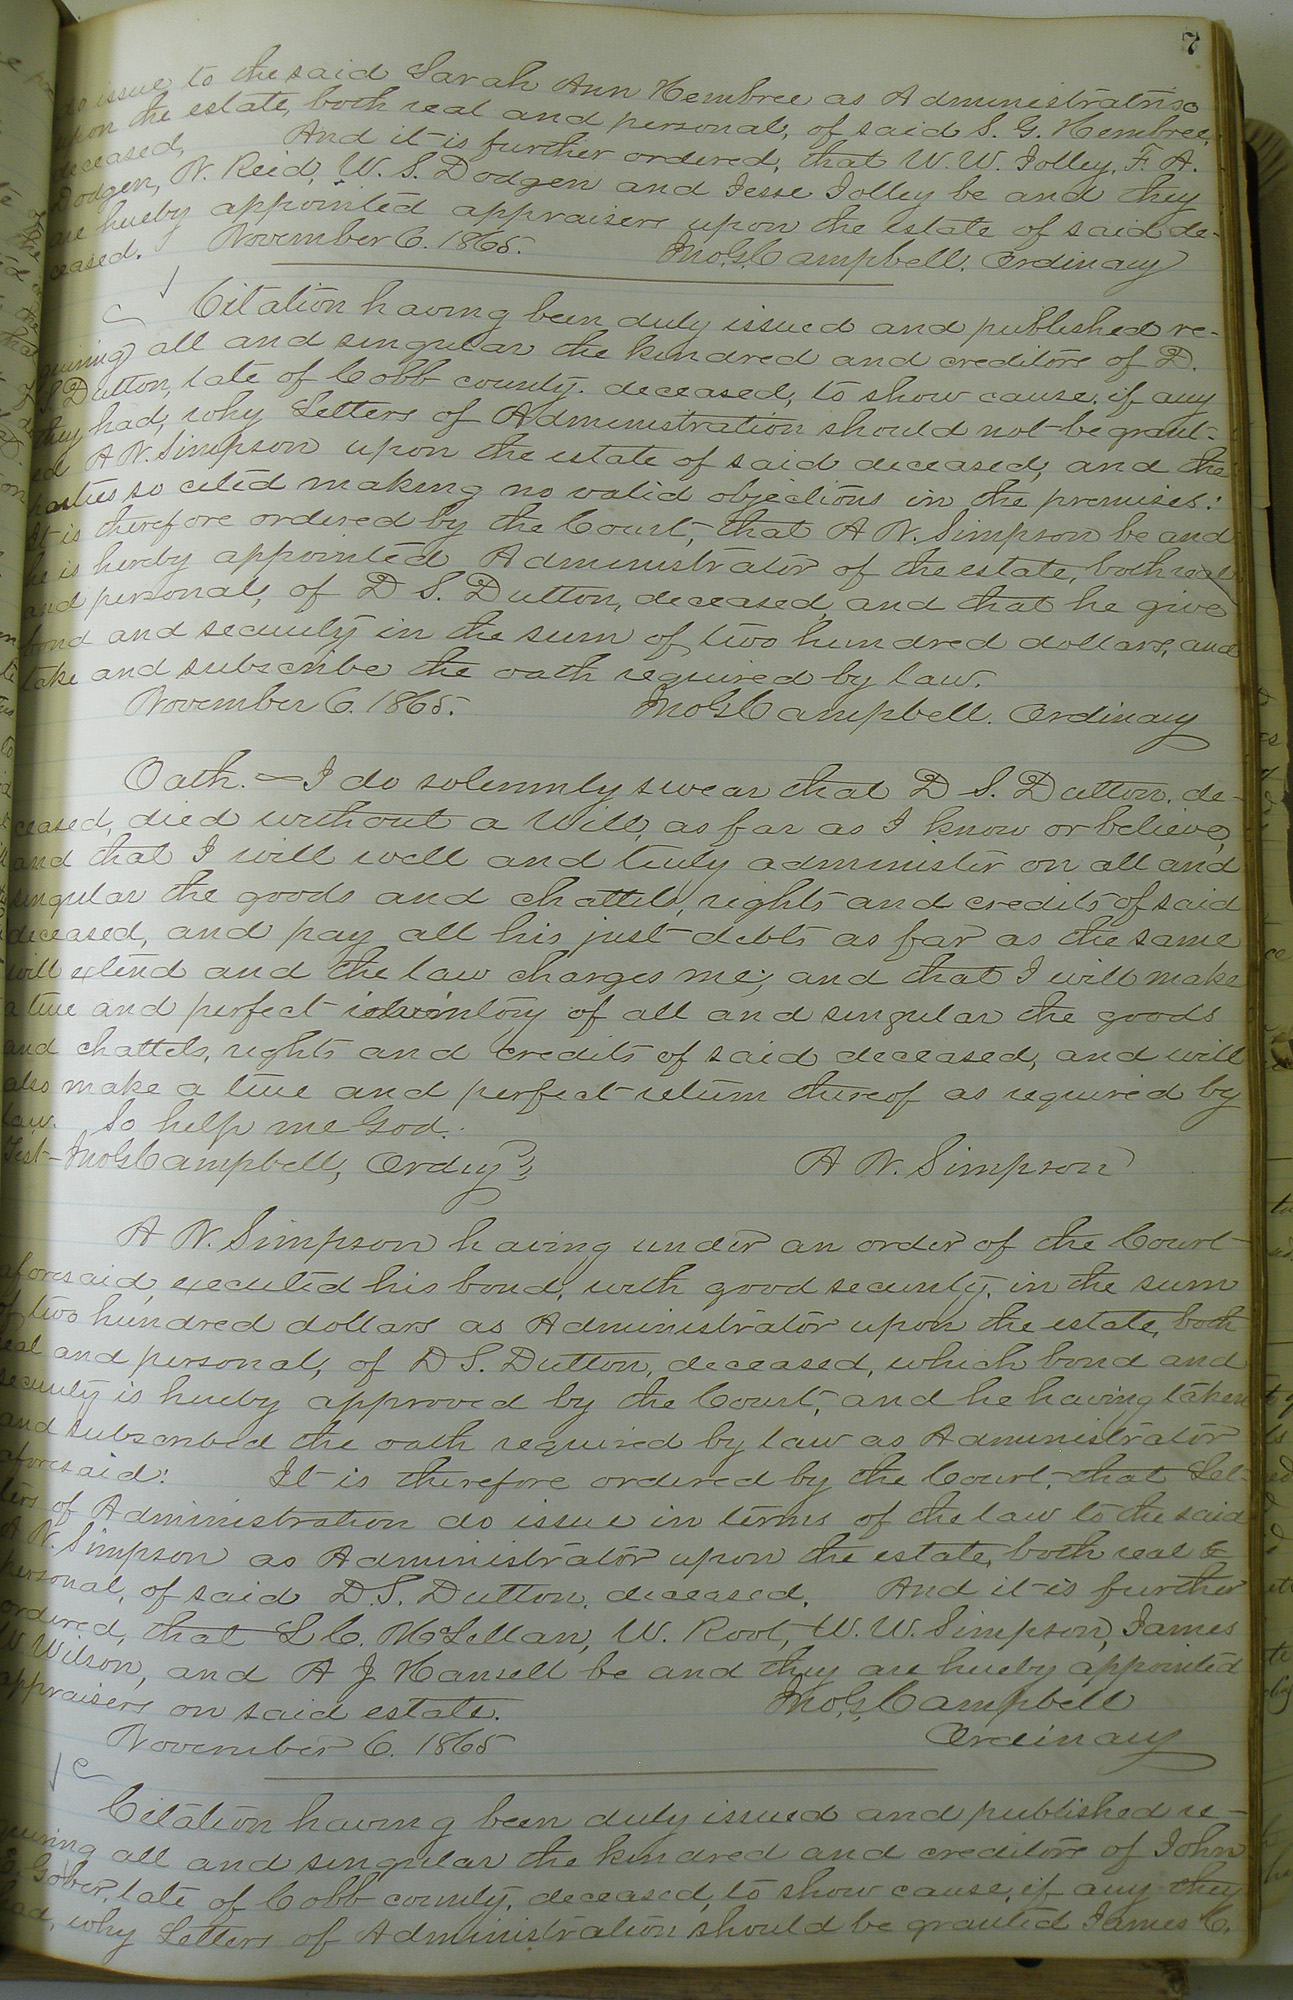 7
do issue to the said Sarah Ann Hembree as Administratrix
upon the estate, both real and personal, of said S. G. Hembree,
deceased, And it is further ordered, that W. W. Jolley, F. A.
Dodgen, N. Reid, W. S. Dodgen and Jesse Jolley be and they
are hereby appointed appraisers upon the estate of said de-
ceased. November 6. 1865. Jno. G. Campbell. Ordinary
Citation having been duly issued and published re-
quiring all and singular the kindred and creditors of D.
S. Dutton, late of Cobb county, deceased, to show cause, if any
they had, why Letters of Administration should not be grant-
ed A N. Simpson upon the estate of said deceased, and the
parties so cited making no valid objections in the premises:
It is therefore ordered by the Court, that A N. Simpson be and
he is hereby appointed Administrator of the estate, both real
and personal, of D S. Dutton, deceased, and that he give
bond and security in the sum of two hundred dollars, and
take and subscribe the oath required by law.
November 6. 1865. Jno G Campbell. Ordinary
Oath. — I do solemnly swear that D S. Dutton, de-
ceased, died without a Will, as far as I know or believe,
and that I will well and truly administer on all and
singular the goods and chattels, rights and credits of said
deceased, and pay all his just debts as far as the same
will extend and the law charges me; and that I will make
a true and perfect inventory of all and singular the goods
and chattels, rights and credits of said deceased, and will
also make a true and perfect return thereof as required by
law. So help me God.
Test- Jno G Campbell, Ordny A N. Simpson
A N. Simpson having under an order of the Court
aforesaid, executed his bond, with good security, in the sum
of two hundred dollars as Administrator upon the estate, both
real and personal, of D S. Dutton, deceased, which bond and
security is hereby approved by the Court, and he having taken
and subscribed the oath required by law as Administrator
aforesaid: It is therefore ordered by the Court, that Let-
ters of Administration do issue in terms of the law to the said
A N. Simpson as Administrator upon the estate, both real &
personal, of said D. S. Dutton, deceased. And it is further
ordered, that L C. McLellan, W. Root, W. W. Simpson, James
W Wilson, and A J. Hansell be and they are hereby appointed
appraisers on said estate. Jno. G. Campbell
November 6. 1865 Ordinary
Citation having been duly issued and published re-
quiring all and singular the kindred and creditors of John
Gober, late of Cobb county, deceased, to show cause, if any they
had, why Letters of Administration should be granted James C.